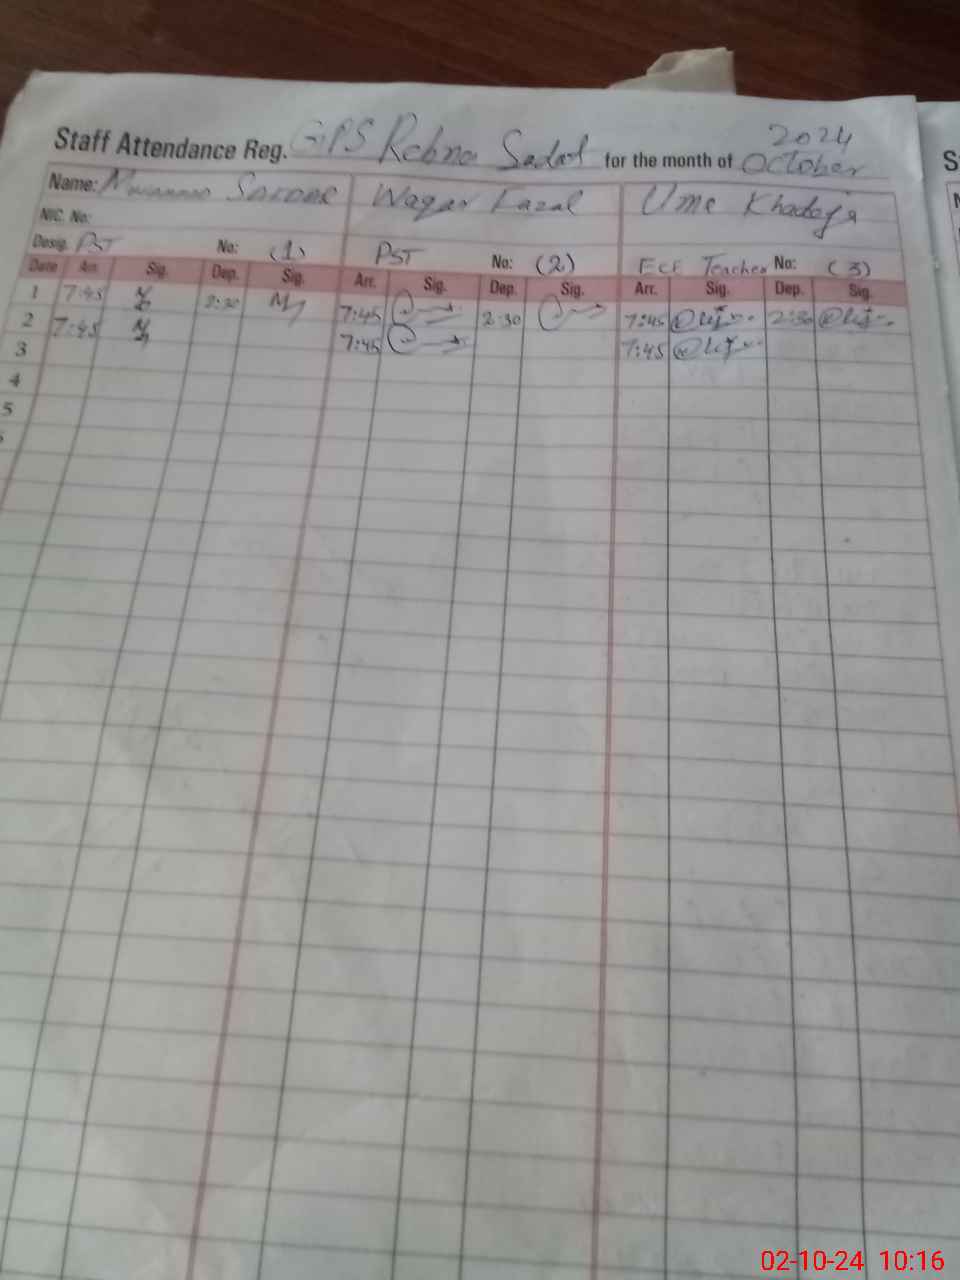 Staff Attendance Reg. GPS Rehna Sadat for the month of October 2024
Name: Sardar Waqar Fazal Ume Khadeja
NIC. No:
Desig. PST No: (1) PST No: (2) ECE Teacher No: (3)
Date Arr. Sig. Dep. Sig. Arr. Sig. Dep. Sig. Arr. Sig. Dep. Sig.
1 7:45 2:30 7:45 2:30 7:45 2:30
2 7:45 7:45 7:45
3
4
5
02-10-24 10:16